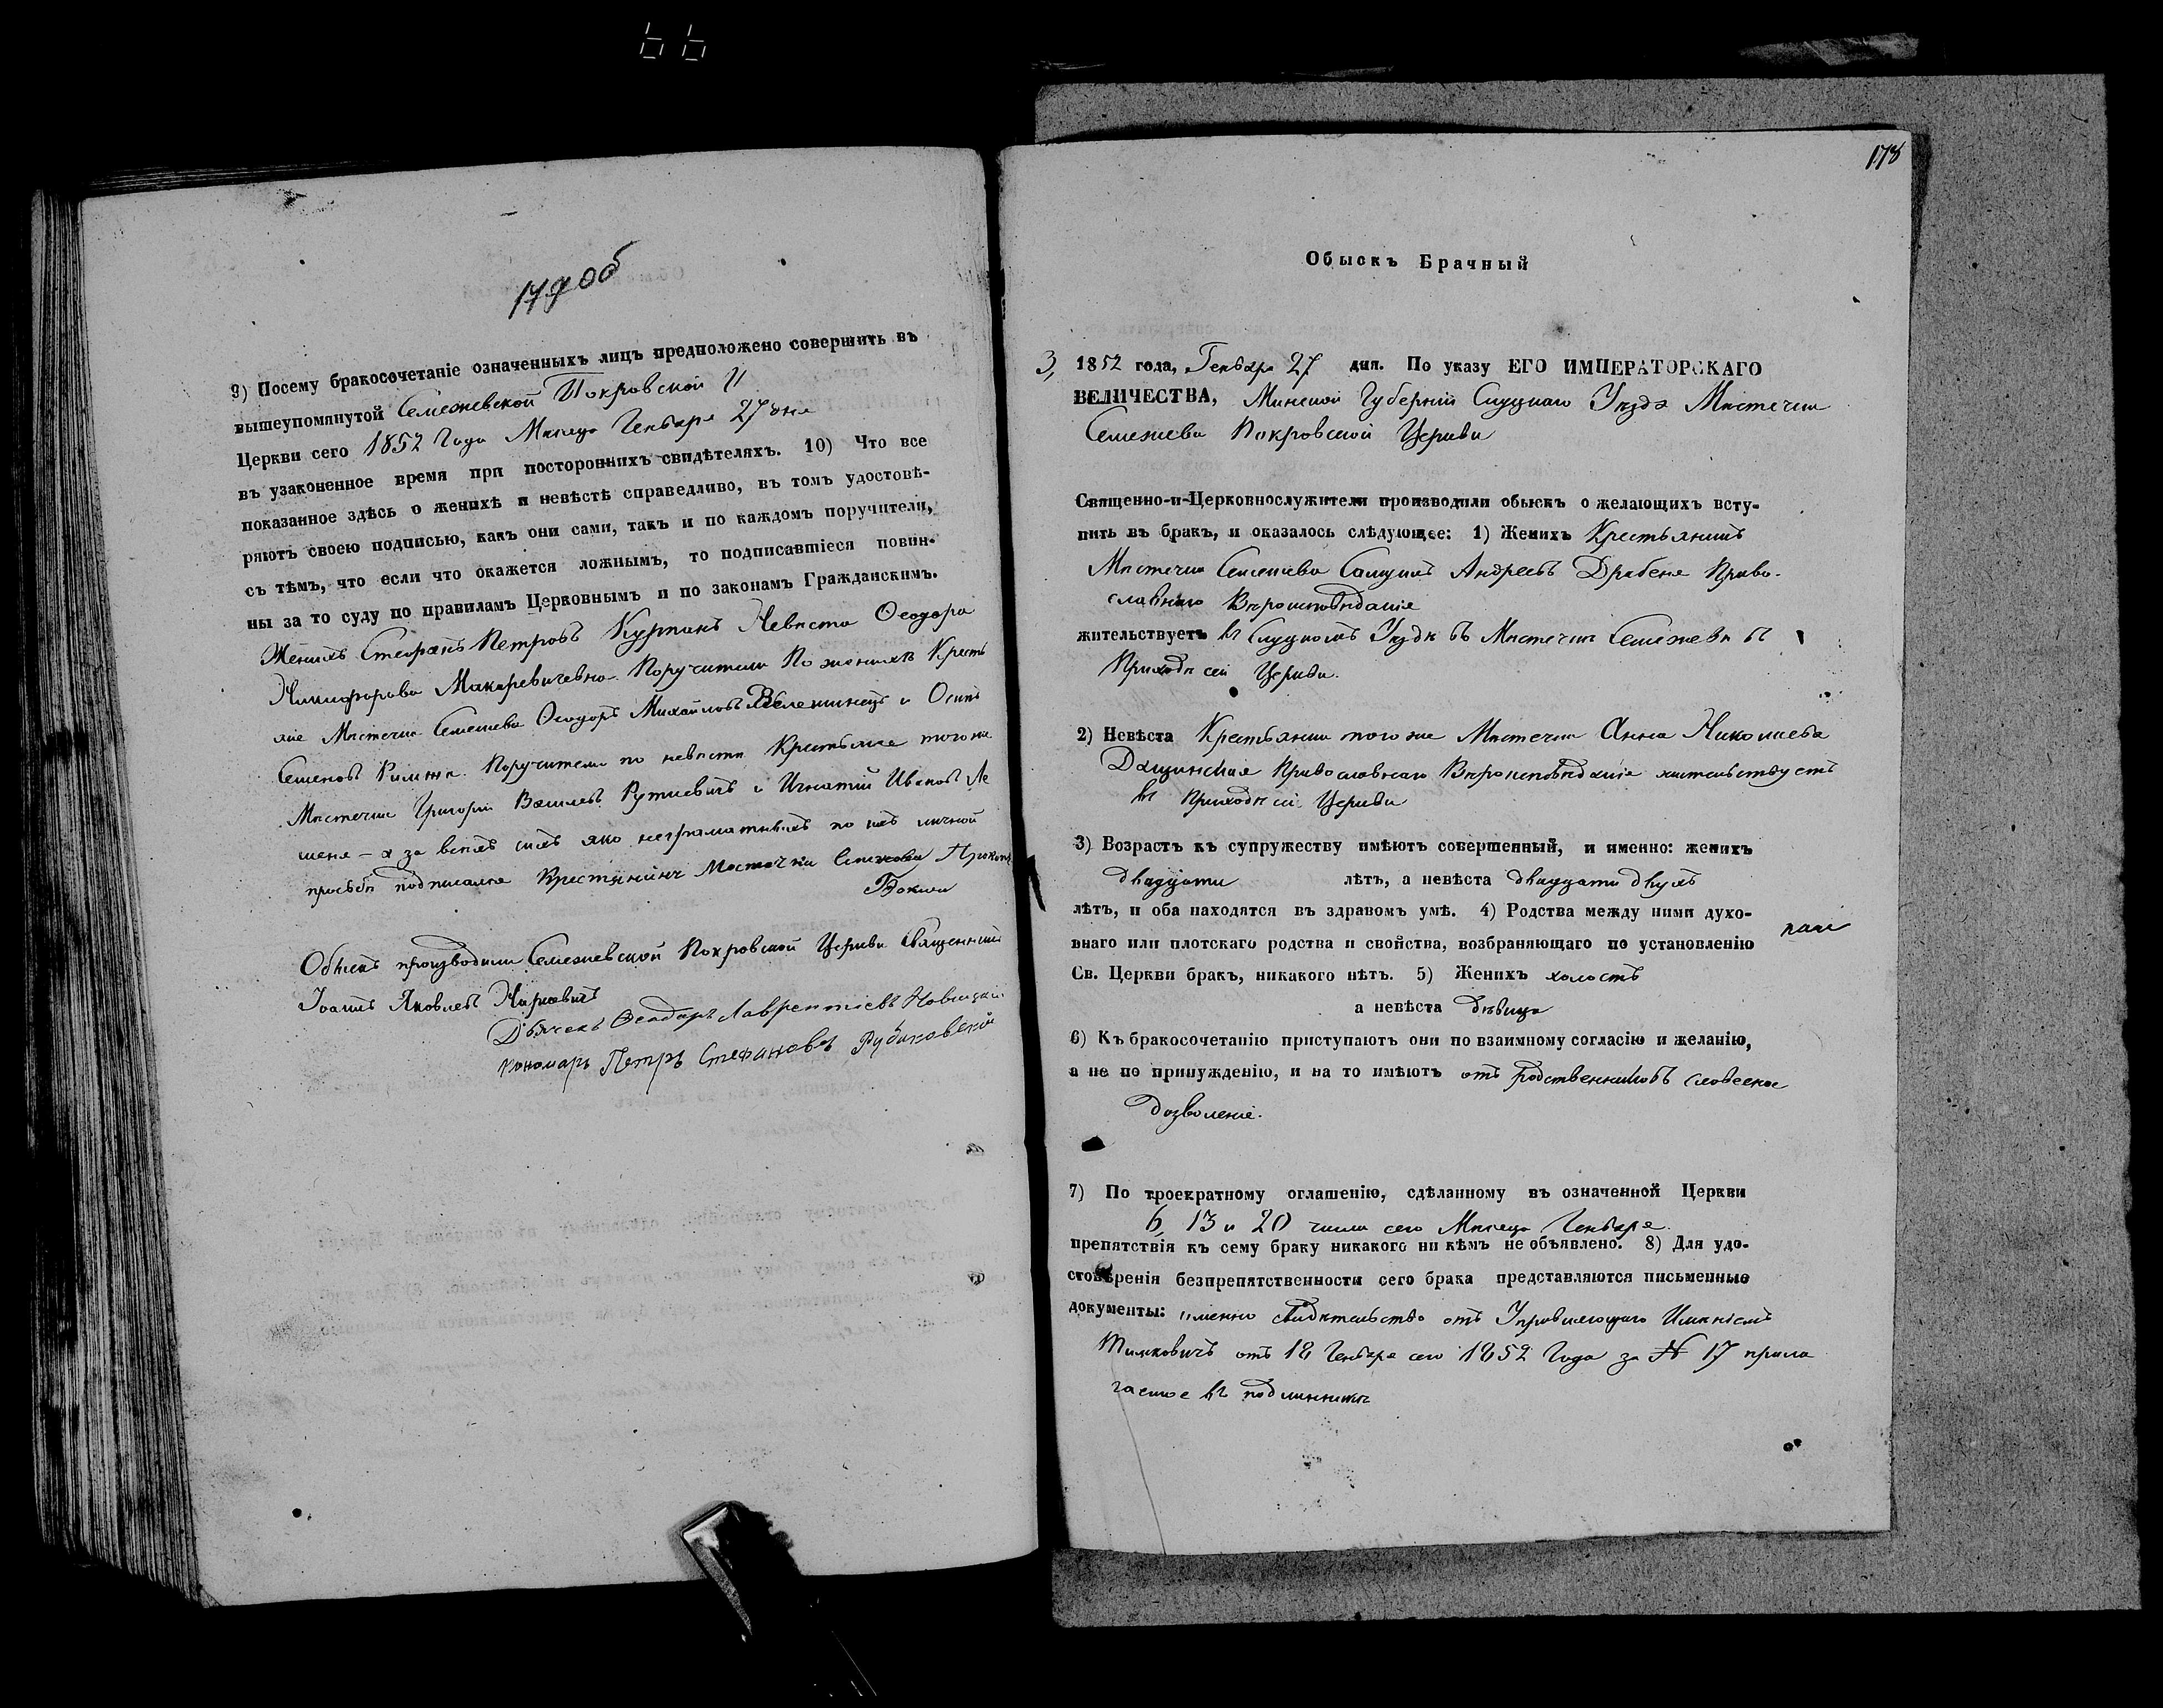 66
179 об
9) Посему бракосочетаніе означенныхъ лицъ предположено совершить въ
вышеупомянутой Семежевской Покровской
Церкви сего 1852 Года Месеца Генваря 27 дня
въ узаконенное время при постороннихъ свидѣтеляхъ. 10) Что все
показанное здѣсь о женихѣ и невѣстѣ справедливо, въ томъ удостовѣ-
ряютъ своею подписью, какъ они сами, такъ и по каждомъ поручители,
съ тѣмъ, что если что окажется ложнымъ, то подписавшіеся повин-
ны за то суду по правиламъ Церковнымъ и по законамъ Гражданскимъ.
Женихъ Стефанъ Петровъ Курманъ Невѣста Ѳеодора
Никифорова Макаревичевна Поручители По женихѣ Кресть
яне Мѣстечка Семежева Ѳеодоръ Михайловъ и Осипъ
Семеновъ Поручители по невѣсте Крестьяне тогоже
Мѣстечка Григорій Васильевъ Руткевичъ и Игнатій Ивановъ Ле
шеня – а за всѣхъ сихъ яко неграматныхъ по ихъ личной
просьбѣ подписался Крестянинъ Мостечка Семежева Прокопъ
Бокша
Обыскъ производили Семежевской Покровской Церкви Священникъ
Іоаннъ Яковлевъ
Дьячекъ Ѳеодоръ Лаврентіевъ Новицкій
Пономарь Петръ Стефановъ Рубановскій
178
Обыскъ Брачный
3, 1852 года, Генваря 27 дня. По указу ЕГО ИМПЕРАТОРСКАГО
ВЕЛИЧЕСТВА, Минской Губерніи Слуцкаго Уезда Мѣстечка
Семежева Покровской Церкви
Священно-и-Церковнослужители производили обыскъ о желающихъ всту-
пить въ бракъ, и оказалось слѣдующее: 1) Женихъ Крестьянинъ
Мѣстечка Семежева Самуилъ Андреевъ Драбеня Право-
славнаго Вѣроисповѣданія
жительствуетъ въ Слуцкомъ Уѣздѣ въ Мѣстечкѣ Семежевѣ въ
Приходѣ сей Церкви.
2) Невѣста Крестьянка того же Мѣстечка Анна Николаева
Дащинская Православнаго Вѣроисповѣданія жительствуетъ
въ Приходѣ сей Церкви
3) Возрастъ къ супружеству имѣютъ совершенный, и именно: женихъ
двадцати лѣтъ, а невѣста двадцати двухъ
лѣтъ, и оба находятся въ здравомъ умѣ. 4) Родства между ними духо-
внаго или плотскаго родства и свойства, возбраняющаго по установленію
Св. Церкви бракъ, никакого нѣтъ. 5) Женихъ холостъ
а невѣста дѣвица
6) Къ бракосочетанію приступаютъ они по взаимному согласію и желанію,
а не по принужденію, и на то имѣютъ отъ родственниковъ словесное
дозволеніе.
7) По троекратному оглашенію, сдѣланному въ означенной Церкви
6, 13 и 20 числа сего Месеца Генваря
препятствія къ сему браку никакого ни кѣмъ не объявлено. 8) Для удо-
стовѣренія безпрепятственности сего брака представляются письменные
документы: именно свидѣтельство отъ Управляющаго Имѣніемъ
Тимковичъ отъ 18 Генваря сего 1852 Года за № 17 прила
гаемое въ подлинникѣ